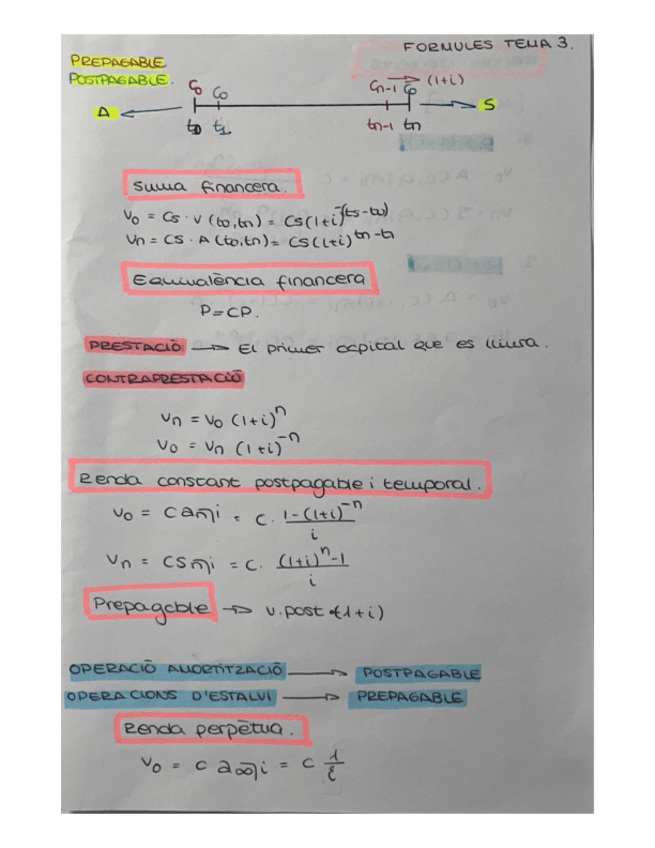 FORMULES TEMA 3.
PREPAGABLE
POSTPAGABLE.
C₀ C₀ Cn-1 → (1+i)
A S
t₀ t₁ tn-1 tn
Suma financera.
V₀ = Cs · V (t₀,tn) = Cs(1+i)^-(ts-t₀)
Vn = CS · A (t₀,tn) = CS(1+i)^tn-t₁
Equivalència financera
P=CP.
PRESTACIÓ → El primer capital que es lliura.
CONTRAPRESTACIÓ
Vn = V₀ (1+i)^n
V₀ = Vn (1+i)^-n
Renda constant postpagable i temporal.
V₀ = C a n̅| i = C · (1-(1+i)^-n)/i
Vn = C S n̅| i = C · ((1+i)^n-1)/i
Prepagable → V.post ·(1+i)
OPERACIÓ AMORTITZACIÓ → POSTPAGABLE
OPERACIONS D'ESTALVI → PREPAGABLE
Renda perpètua.
V₀ = C a ∞̅| i = C 1/i